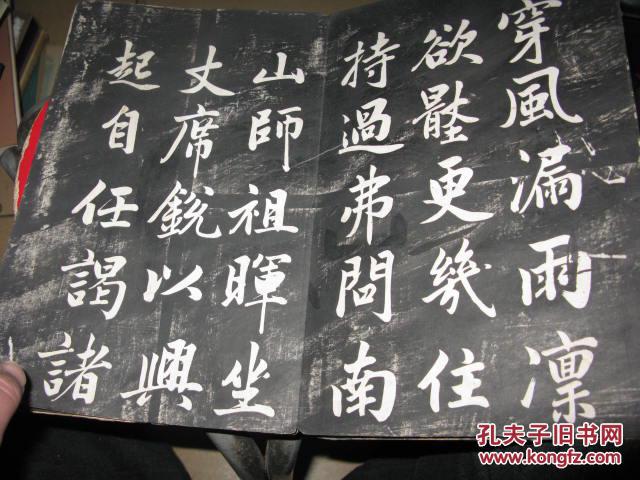 穿風漏雨凜
欲壓更幾住
持過弗問南
山師祖暉坐
丈席銳以興
起自任謁諸
孔夫子旧书网
www.kongfz.com